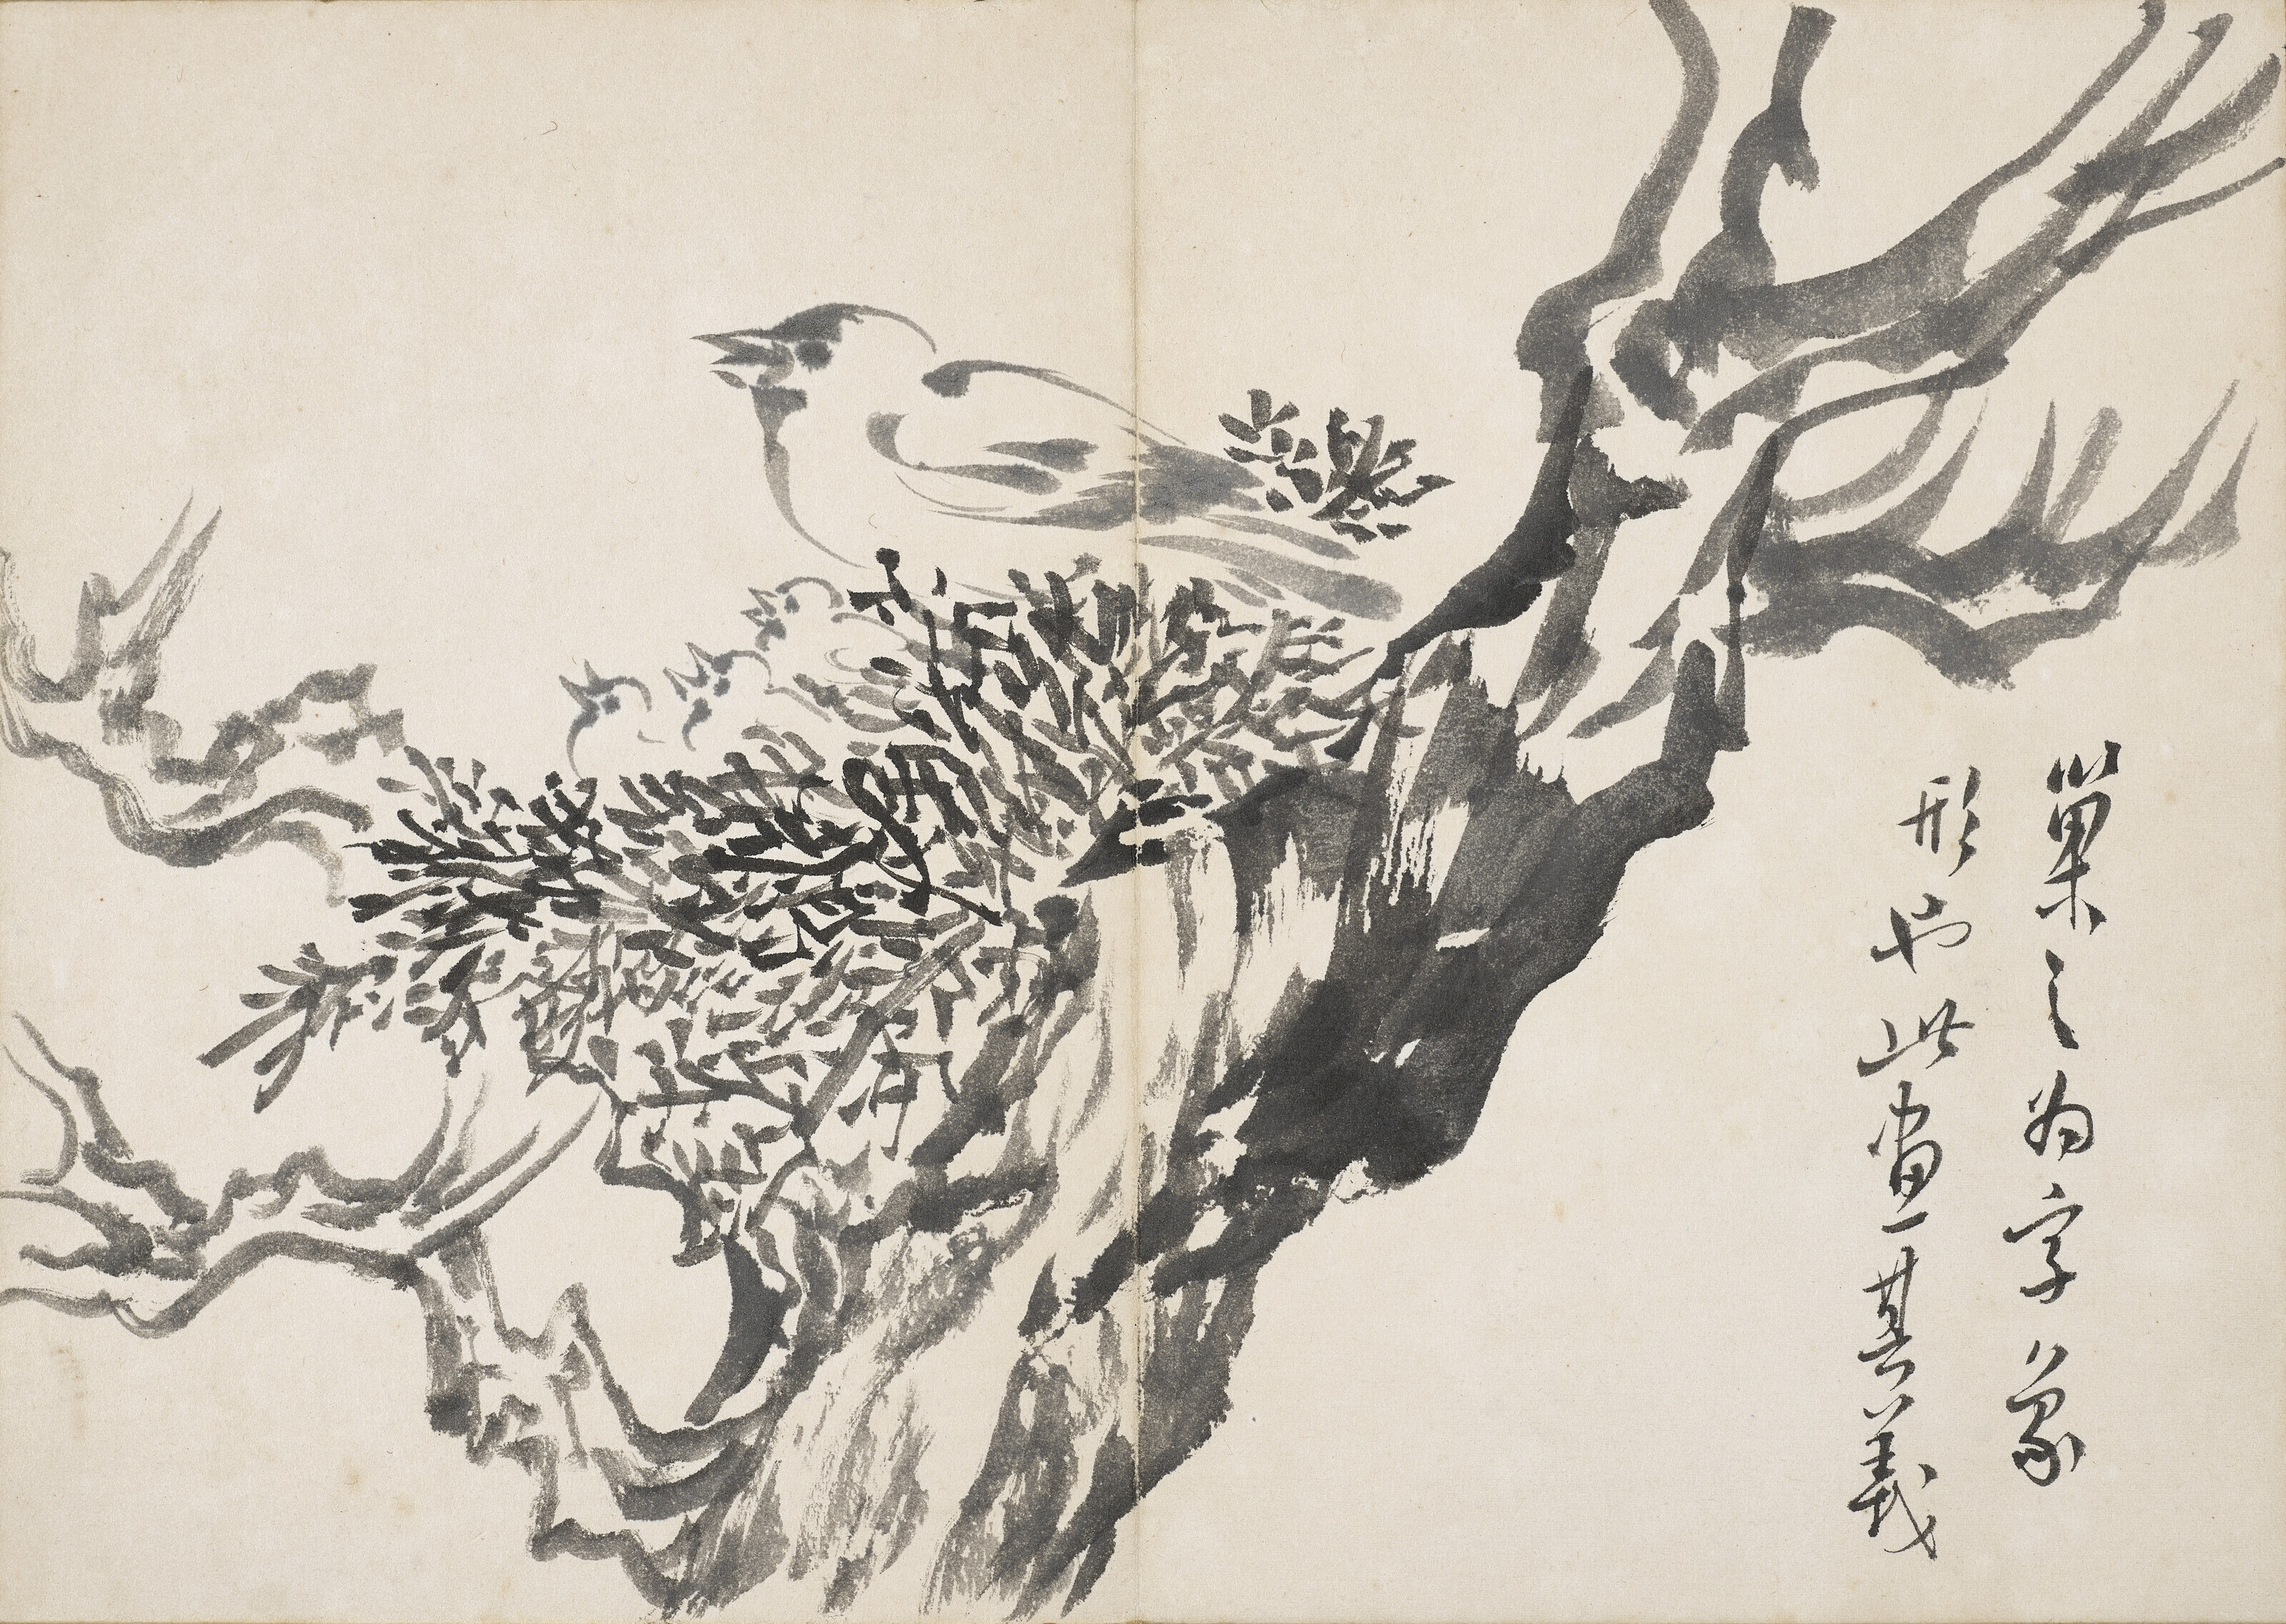 巢之為字象
形也此畫其義